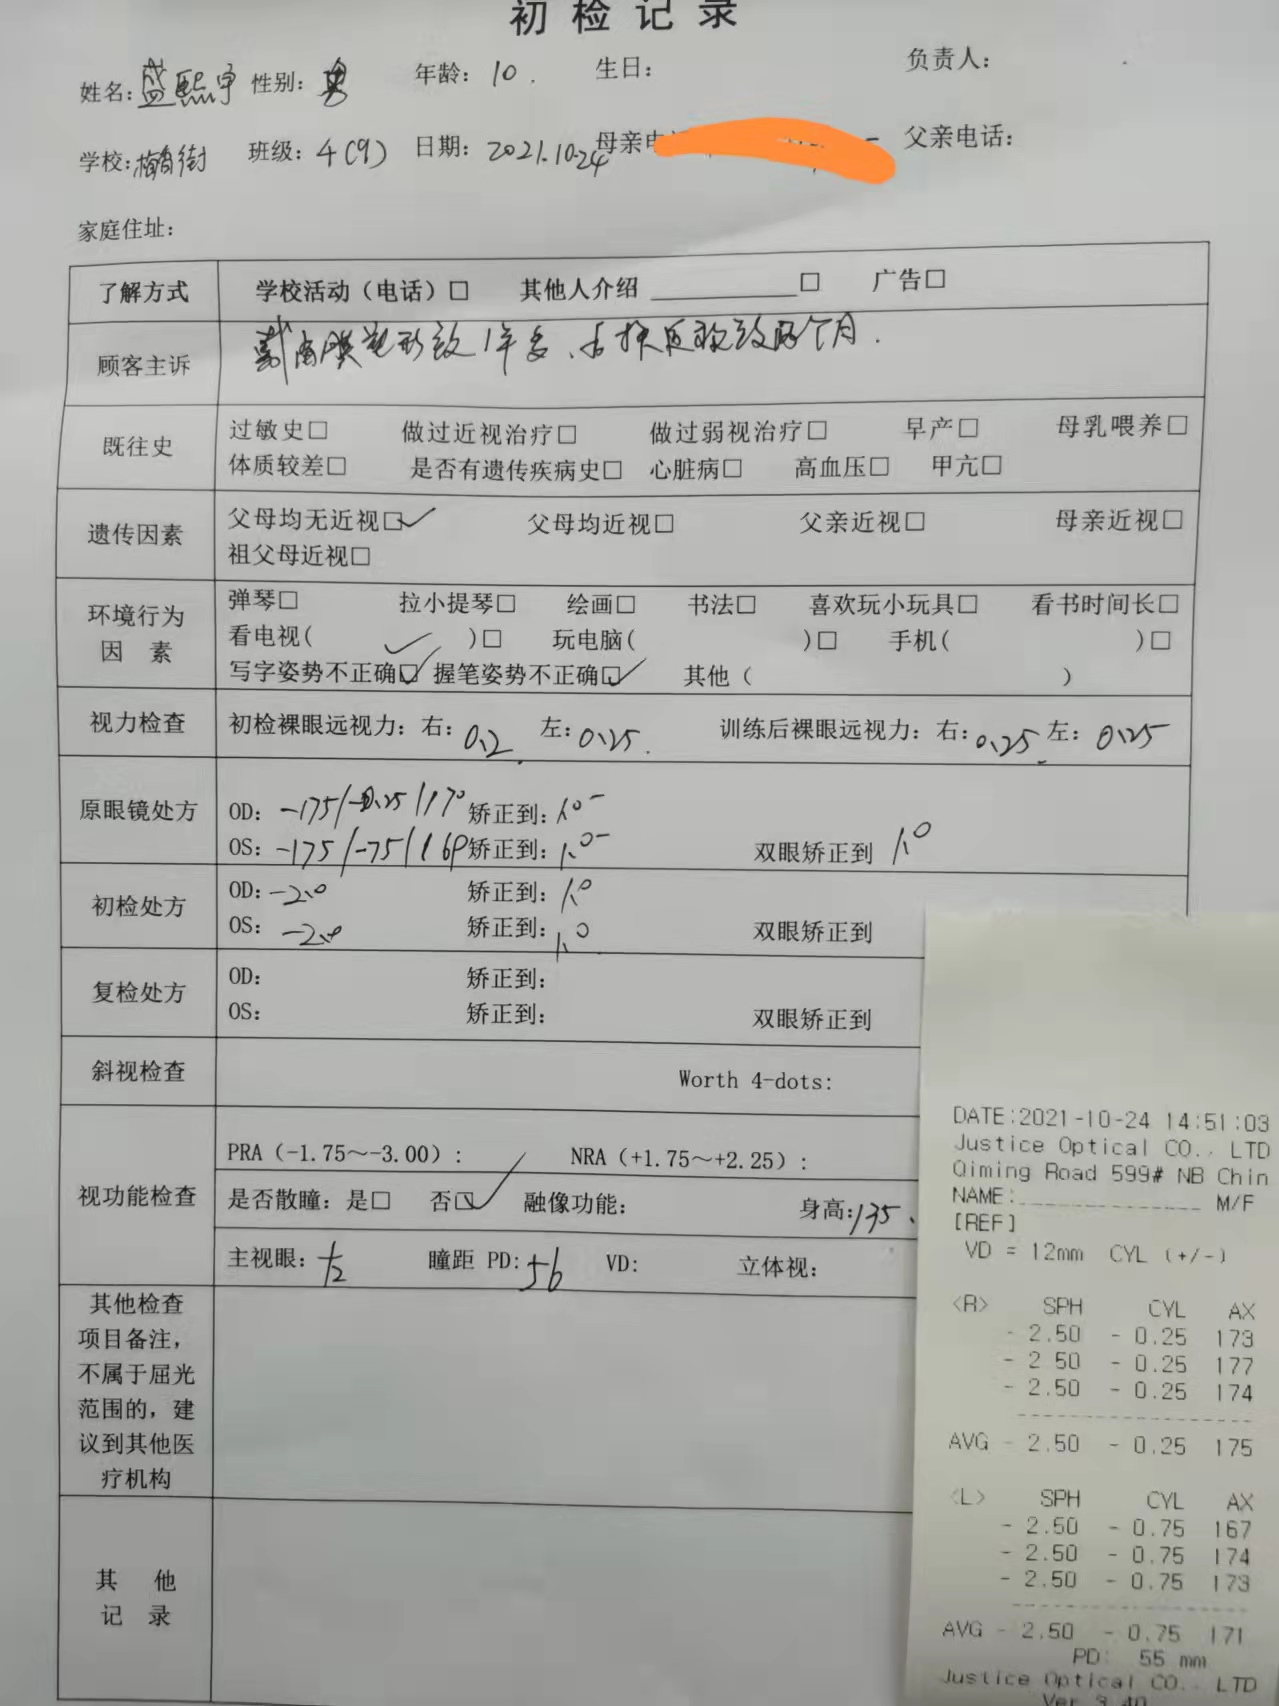 初检记录
姓名：盛熙宇 性别：男 年龄：10. 生日： 负责人：
学校： 班级：4(9) 日期：2021.10.24 母亲电 父亲电话：
家庭住址：
了解方式 学校活动（电话）□ 其他人介绍________□ 广告□
顾客主诉 戴 塑形 1年多、 两个月.
既往史 过敏史□ 做过近视治疗□ 做过弱视治疗□ 早产□ 母乳喂养□
体质较差□ 是否有遗传疾病史□ 心脏病□ 高血压□ 甲亢□
遗传因素 父母均无近视□✓ 父母均近视□ 父亲近视□ 母亲近视□
祖父母近视□
环境行为因素 弹琴□ 拉小提琴□ 绘画□ 书法□ 喜欢玩小玩具□ 看书时间长□
看电视（✓）□ 玩电脑（ ）□ 手机（ ）□
写字姿势不正确□✓ 握笔姿势不正确□✓ 其他（ ）
视力检查 初检裸眼远视力：右：0.2 左：0.25. 训练后裸眼远视力：右：0.25 左：0.25
原眼镜处方 OD：-175/-0.25/170 矫正到：1.0-
OS：-175/-75/169 矫正到：1.0- 双眼矫正到 1.0
初检处方 OD：-2.0 矫正到：1.0
OS：-2.0 矫正到：1.0 双眼矫正到
复检处方 OD： 矫正到：
OS： 矫正到： 双眼矫正到
斜视检查 Worth 4-dots:
视功能检查 PRA（-1.75～-3.00）： NRA（+1.75～+2.25）：
是否散瞳：是□ 否□✓ 融像功能： 身高：135.
主视眼： 瞳距 PD：56 VD： 立体视：
其他检查
项目备注，
不属于屈光
范围的，建
议到其他医
疗机构
其 他
记 录
DATE:2021-10-24 14:51:03
Justice Optical CO., LTD
Qiming Road 599# NB Chin
NAME:______________ M/F
[REF]
VD = 12mm CYL (+/-)
<R> SPH CYL AX
- 2.50 - 0.25 173
- 2.50 - 0.25 177
- 2.50 - 0.25 174
AVG - 2.50 - 0.25 175
<L> SPH CYL AX
- 2.50 - 0.75 167
- 2.50 - 0.75 174
- 2.50 - 0.75 173
AVG - 2.50 - 0.75 171
PD: 55 mm
Justice Optical CO., LTD